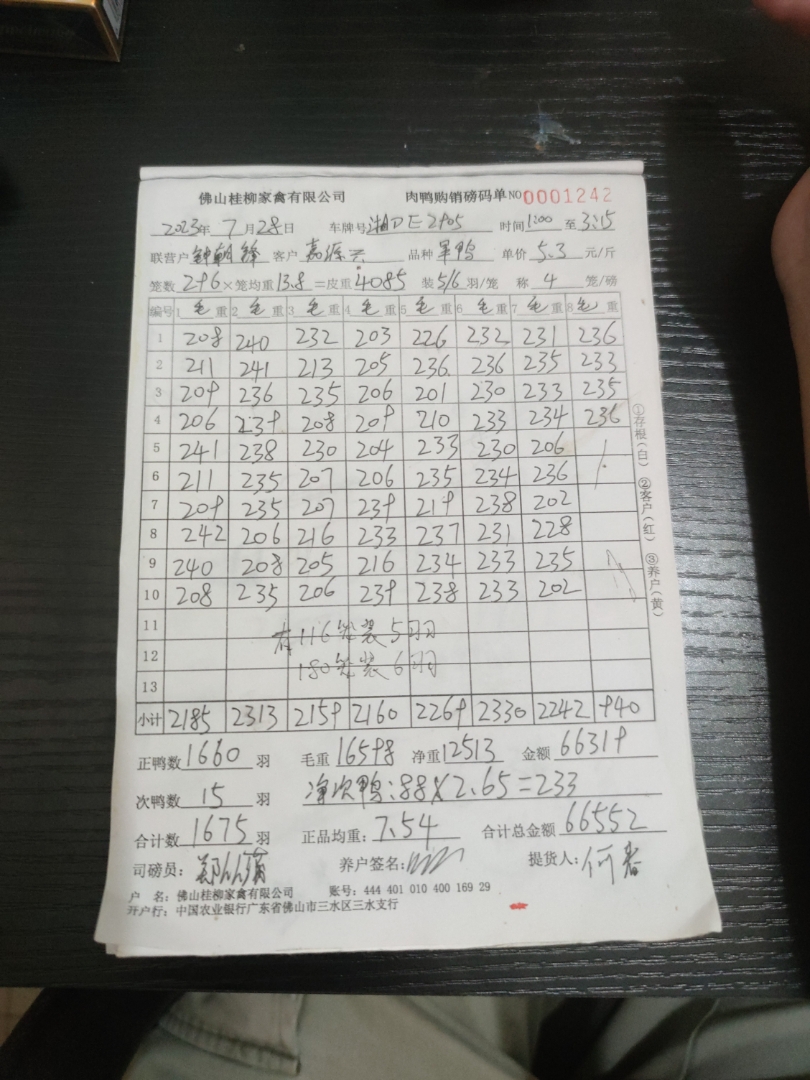 佛山桂柳家禽有限公司 肉鸭购销磅码单 NO 0001242
2023年 7月28日 车牌号 湘DE2905 时间 1:00 至 3:15
联营户 钟朝锋 客户 嘉源兴 品种 单价 5.3 元/斤
笼数 296 ×笼均重 13.8 =皮重 4085 装 5/6 羽/笼 称 4 笼/磅
编号 1 毛重 2 毛重 3 毛重 4 毛重 5 毛重 6 毛重 7 毛重 8 毛重
1 208 240 232 203 226 232 231 236
2 211 241 213 205 236 236 235 233
3 209 236 235 206 201 230 233 235
4 206 239 208 209 210 233 234 236
5 241 238 230 204 233 230 206
6 211 235 207 206 235 234 236
7 209 235 207 239 219 238 202
8 242 206 216 233 237 231 228
9 240 208 205 216 234 233 235
10 208 235 206 239 238 233 202
11 有116笼装5羽
12 180笼装6羽
13
小计 2185 2313 2159 2160 2269 2330 2242 940
正鸭数 1660 羽 毛重 16598 净重 12513 金额 66319
次鸭数 15 羽 净次鸭:88×2.65=233
合计数 1675 羽 正品均重: 7.54 合计总金额 66552
司磅员: 养户签名: 提货人: 何春
户 名: 佛山桂柳家禽有限公司 账号: 444 401 010 400 169 29
开户行: 中国农业银行广东省佛山市三水区三水支行
①存根(白) ②客户(红) ③养户(黄)